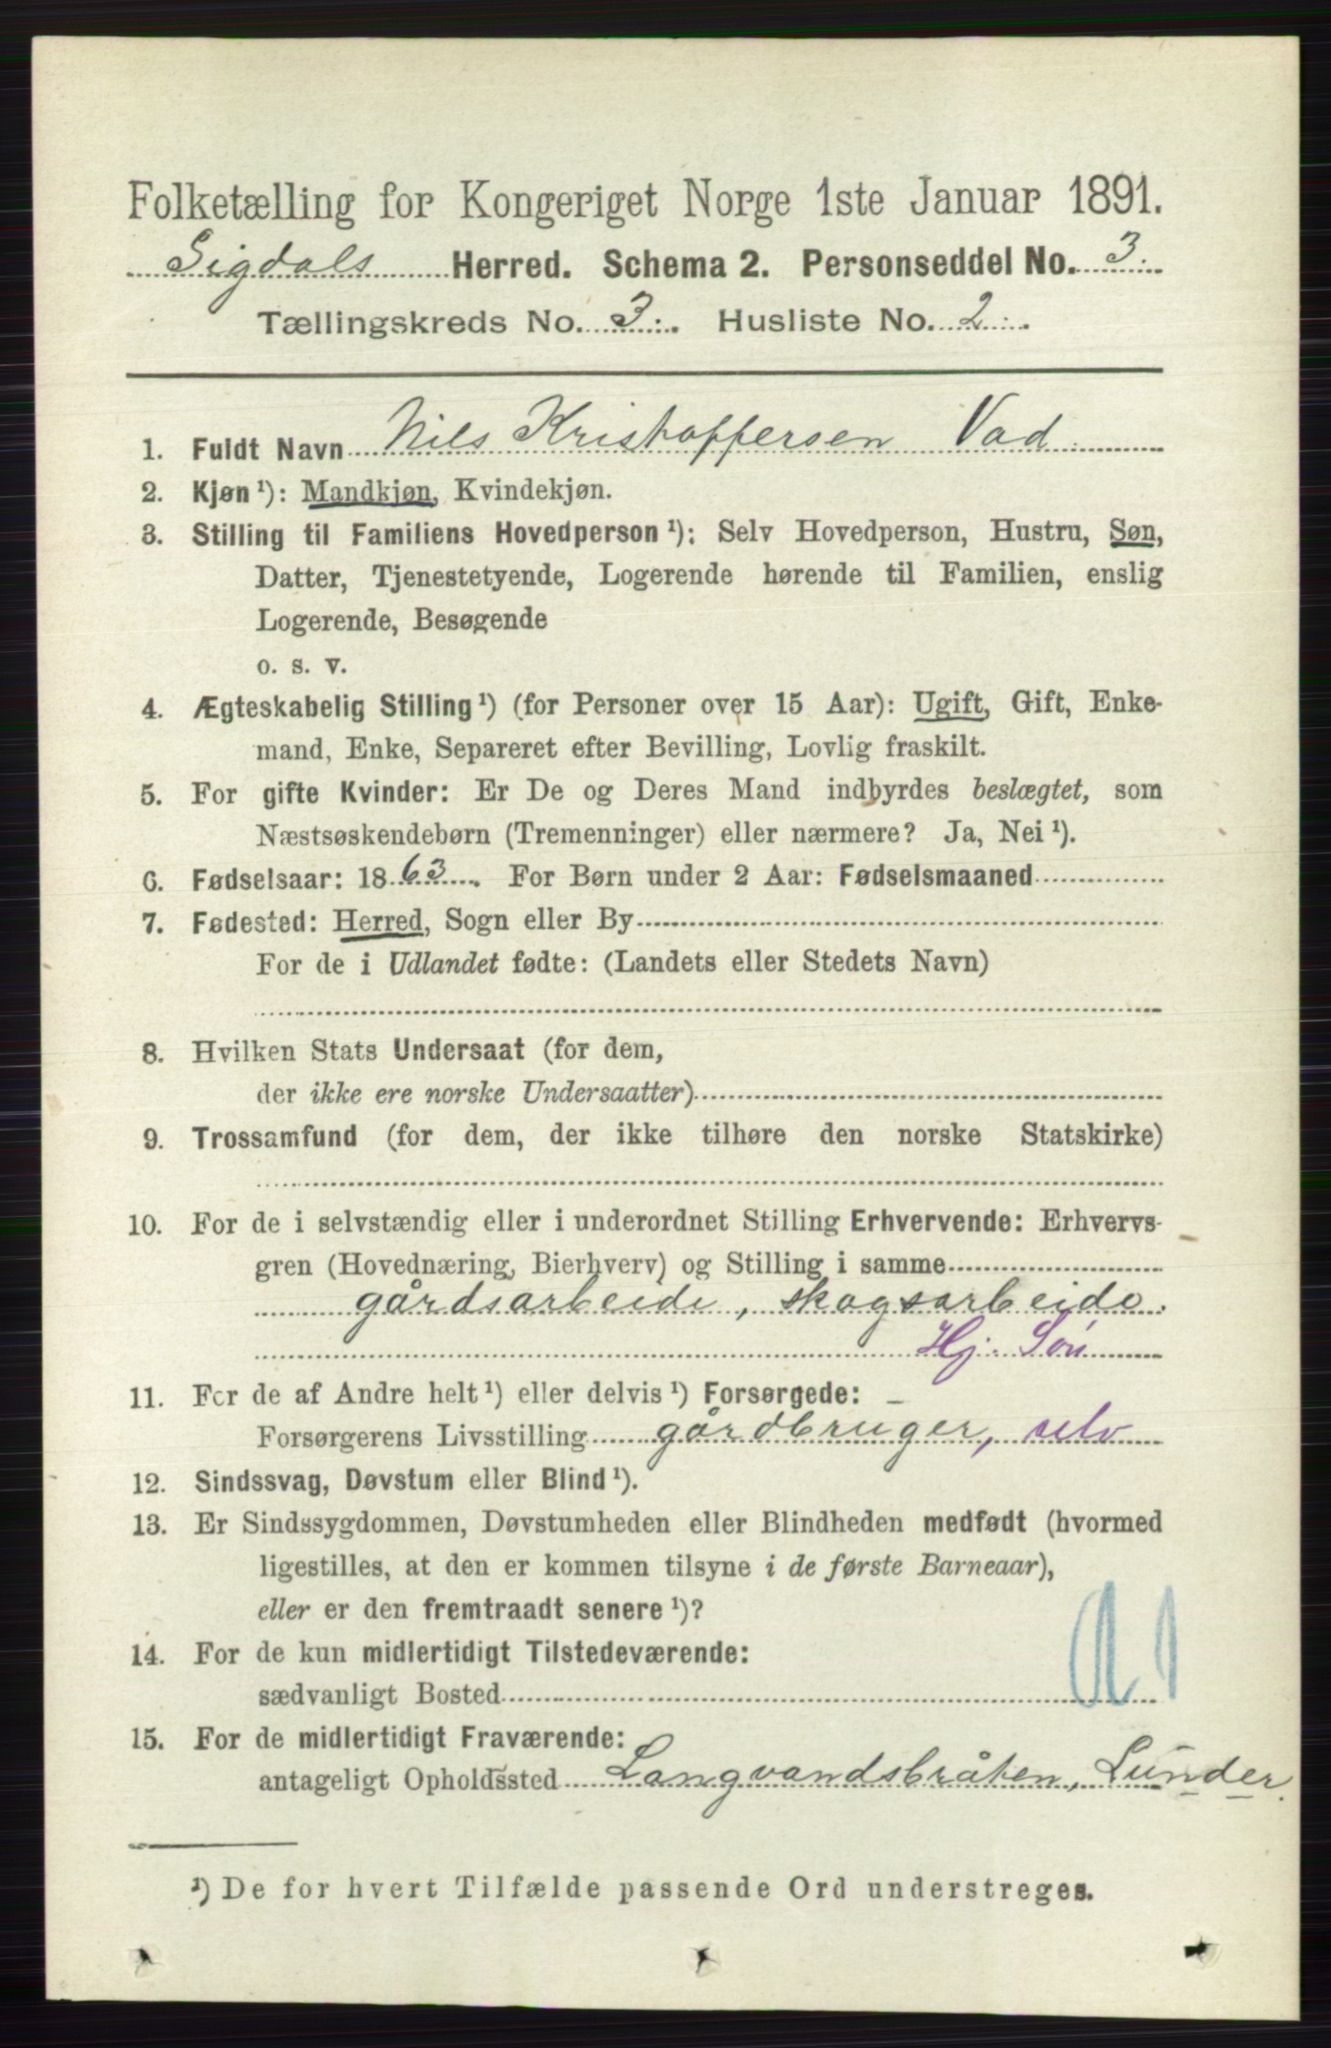 Folketælling for Kongeriget Norge 1ste Januar 1891.
Sigdals Herred. Schema 2. Personseddel No. 3.
Tællingskreds No. 3. Husliste No. 2.
1. Fuldt Navn Nils Kristoffersen Vad.
2. Kjøn¹): Mandkjøn, Kvindekjøn.
3. Stilling til Familiens Hovedperson¹): Selv Hovedperson, Hustru, Søn,
Datter, Tjenestetyende, Logerende hørende til Familien, enslig
Logerende, Besøgende
o. s. v.
4. Ægteskabelig Stilling¹) (for Personer over 15 Aar): Ugift, Gift, Enke-
mand, Enke, Separeret efter Bevilling, Lovlig fraskilt.
5. For gifte Kvinder: Er De og Deres Mand indbyrdes beslægtet, som
Næstsøskendebørn (Tremenninger) eller nærmere? Ja, Nei¹).
6. Fødselsaar: 1863. For Børn under 2 Aar: Fødselsmaaned
7. Fødested: Herred, Sogn eller By
For de i Udlandet fødte: (Landets eller Stedets Navn)
8. Hvilken Stats Undersaat (for dem,
der ikke ere norske Undersaatter)
9. Trossamfund (for dem, der ikke tilhøre den norske Statskirke)
10. For de i selvstændig eller i underordnet Stilling Erhvervende: Erhvervs-
gren (Hovednæring, Bierhverv) og Stilling i samme
gårdsarbeide, skogsarbeide.
Hj. Søn
11. For de af Andre helt¹) eller delvis¹) Forsørgede: –
Forsørgerens Livsstilling gårdbruger, selv
12. Sindssvag, Døvstum eller Blind¹).
13. Er Sindssygdommen, Døvstumheden eller Blindheden medfødt (hvormed
ligestilles, at den er kommen tilsyne i de første Barneaar),
eller er den fremtraadt senere¹)?
14. For de kun midlertidigt Tilstedeværende:
sædvanligt Bosted
a 1
15. For de midlertidigt Fraværende:
antageligt Opholdssted Langvandsbråten, Lunder.
¹) De for hvert Tilfælde passende Ord understreges.